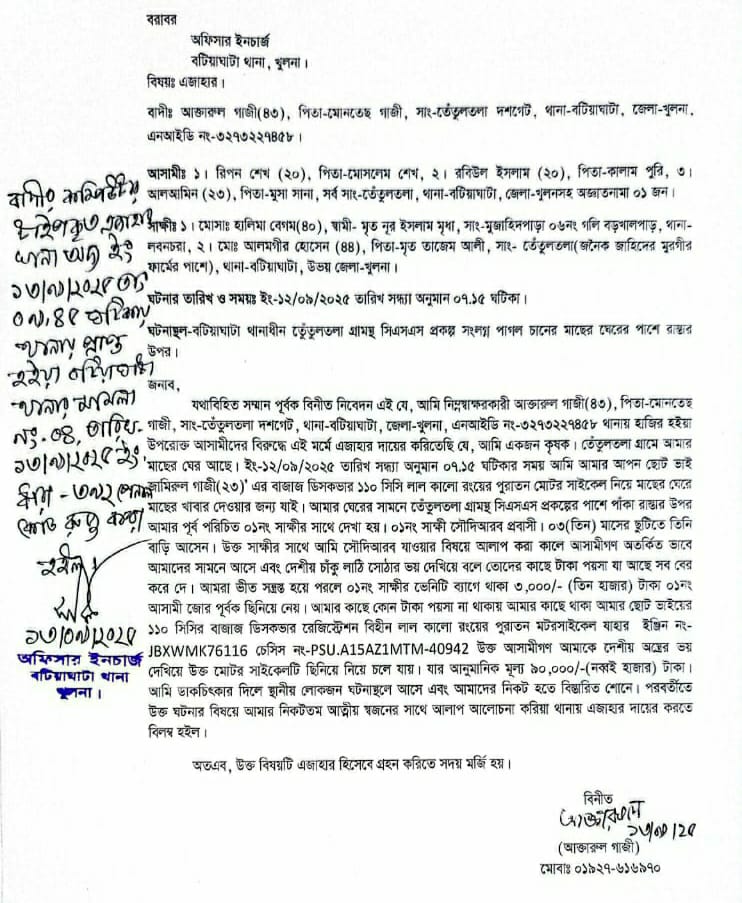 বরাবর
অফিসার ইনচার্জ
বটিয়াঘাটা থানা, খুলনা।
বিষয়ঃ এজাহার।
বাদীঃ আক্তারুল গাজী(৪৩), পিতা-মোনতেছ গাজী, সাং-তেঁতুলতলা দশগেট, থানা-বটিয়াঘাটা, জেলা-খুলনা,
এনআইডি নং-৩২৭৩২২৭৪৫৮।
আসামীঃ ১। রিপন শেখ (২০), পিতা-মোসলেম শেখ, ২। রবিউল ইসলাম (২০), পিতা-কালাম পুরি, ৩।
আলআমিন (২৩), পিতা-মুসা সানা, সর্ব সাং-তেঁতুলতলা, থানা-বটিয়াঘাটা, জেলা-খুলনসহ অজ্ঞাতনামা ০১ জন।
সাক্ষীঃ ১। মোসাঃ হালিমা বেগম(৪০), স্বামী- মৃত নূর ইসলাম মৃধা, সাং-মুজাহিদপাড়া ০৬নং গলি বড়খালপাড়, থানা-
লবনচরা, ২। মোঃ আলমগীর হোসেন (৪৪), পিতা-মৃত তাজেম আলী, সাং- তেঁতুলতলা(জনৈক জাহিদের মুরগীর
ফার্মের পাশে), থানা-বটিয়াঘাটা, উভয় জেলা-খুলনা।
ঘটনার তারিখ ও সময়ঃ ইং-১২/০৯/২০২৫ তারিখ সন্ধ্যা অনুমান ০৭.১৫ ঘটিকা।
ঘটনাস্থল-বটিয়াঘাটা থানাধীন তেঁতুলতলা গ্রামস্থ সিএসএস প্রকল্প সংলগ্ন পাগল চানের মাছের ঘেরের পাশে রাস্তার
উপর।
জনাব,
যথাবিহিত সম্মান পূর্বক বিনীত নিবেদন এই যে, আমি নিম্নস্বাক্ষরকারী আক্তারুল গাজী(৪৩), পিতা-মোনতেছ
গাজী, সাং-তেঁতুলতলা দশগেট, থানা-বটিয়াঘাটা, জেলা-খুলনা, এনআইডি নং-৩২৭৩২২৭৪৫৮ থানায় হাজির হইয়া
উপরোক্ত আসামীদের বিরুদ্ধে এই মর্মে এজাহার দায়ের করিতেছি যে, আমি একজন কৃষক। তেঁতুলতলা গ্রামে আমার
মাছের ঘের আছে। ইং-১২/০৯/২০২৫ তারিখ সন্ধ্যা অনুমান ০৭.১৫ ঘটিকার সময় আমি আমার আপন ছোট ভাই
জামিরুল গাজী(২৩)' এর বাজাজ ডিসকভার ১১০ সিসি লাল কালো রংয়ের পুরাতন মোটর সাইকেল নিয়ে মাছের ঘেরে
মাছের খাবার দেওয়ার জন্য যাই। আমার ঘেরের সামনে তেঁতুলতলা গ্রামস্থ সিএসএস প্রকল্পের পাশে পাঁকা রাস্তার উপর
আমার পূর্ব পরিচিত ০১নং সাক্ষীর সাথে দেখা হয়। ০১নং সাক্ষী সৌদিআরব প্রবাসী। ০৩(তিন) মাসের ছুটিতে তিনি
বাড়ি আসেন। উক্ত সাক্ষীর সাথে আমি সৌদিআরব যাওয়ার বিষয়ে আলাপ করা কালে আসামীগণ অতর্কিত ভাবে
আমাদের সামনে আসে এবং দেশীয় চাঁকু লাঠি সোঠার ভয় দেখিয়ে বলে তোদের কাছে টাকা পয়সা যা আছে সব বের
করে দে। আমরা ভীত সন্ত্রস্ত হয়ে পরলে ০১নং সাক্ষীর ভেনিটি ব্যাগে থাকা ৩,০০০/- (তিন হাজার) টাকা ০১নং
আসামী জোর পূর্বক ছিনিয়ে নেয়। আমার কাছে কোন টাকা পয়সা না থাকায় আমার কাছে থাকা আমার ছোট ভাইয়ের
১১০ সিসির বাজাজ ডিসকভার রেজিস্ট্রেশন বিহীন লাল কালো রংয়ের পুরাতন মটরসাইকেল যাহার ইঞ্জিন নং-
JBXWMK76116 চেসিস নং-PSU.A15AZ1MTM-40942 উক্ত আসামীগণ আমাকে দেশীয় অস্ত্রের ভয়
দেখিয়ে উক্ত মোটর সাইকেলটি ছিনিয়ে নিয়ে চলে যায়। যার আনুমানিক মূল্য ৯০,০০০/-(নব্বই হাজার) টাকা।
আমি ডাকচিৎকার দিলে স্থানীয় লোকজন ঘটনাস্থলে আসে এবং আমাদের নিকট হতে বিস্তারিত শোনে। পরবর্তীতে
উক্ত ঘটনার বিষয়ে আমার নিকটতম আত্নীয় স্বজনের সাথে আলাপ আলোচনা করিয়া থানায় এজাহার দায়ের করতে
বিলম্ব হইল।
অতএব, উক্ত বিষয়টি এজাহার হিসেবে গ্রহন করিতে সদয় মর্জি হয়।
বিনীত
আক্তারুল
১৩/৯/২৫
(আক্তারুল গাজী)
মোবাঃ ০১৯২৭-৬১৬৯৭০
বাদীর কম্পিউটার
টাইপকৃত এজাহার
খানা অদ্য ইং
১৩/৯/২০২৫ তাং
০৯.৪৫ ঘটিকায়
থানায় প্রাপ্ত
হইয়া বটিয়াঘাটা
থানার মামলা
নং-০৪, তারিখ-
১৩/৯/২০২৫ ইং,
ধারা - ৩৯২ পেনাল
কোড রুজু করা
হইল।
১৩/০৯/২০২৫
অফিসার ইনচার্জ
বটিয়াঘাটা থানা
খুলনা।